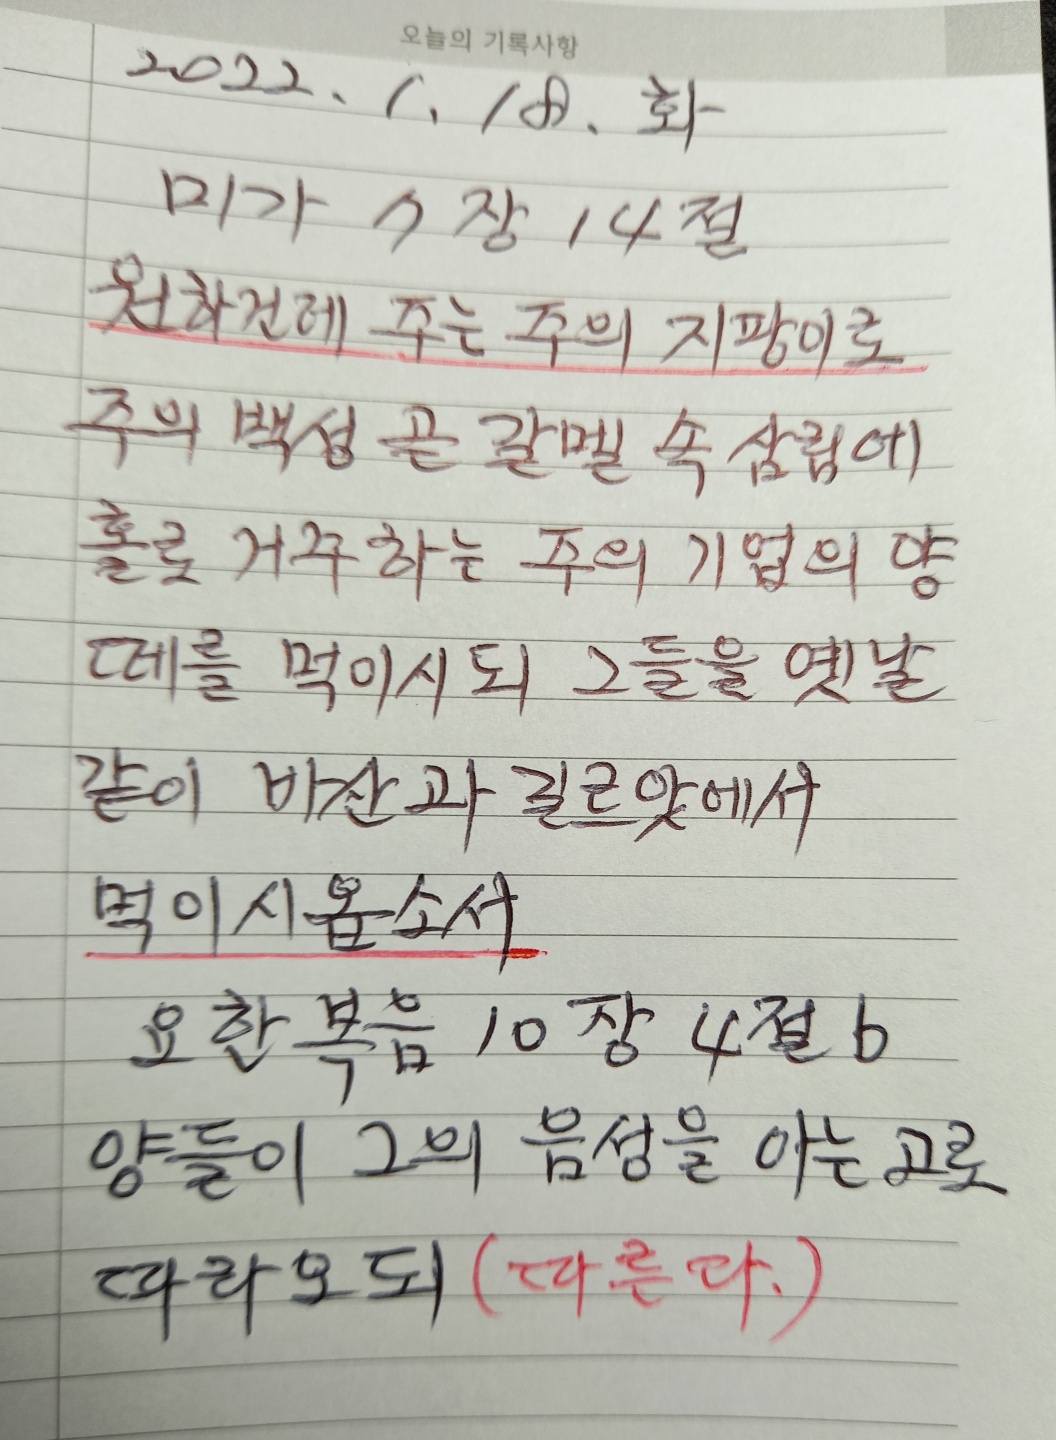 오늘의 기록사항
2022. 1. 18. 화
미가 7장 14절
원하건데 주는 주의 지팡이로
주의 백성 곧 갈멜 속 삼림에
홀로 거주하는 주의 기업의 양
떼를 먹이시되 그들을 옛날
같이 바산과 길르앗에서
먹이시옵소서
요한복음 10장 4절 b
양들이 그의 음성을 아는고로
따라오되 (따른다.)